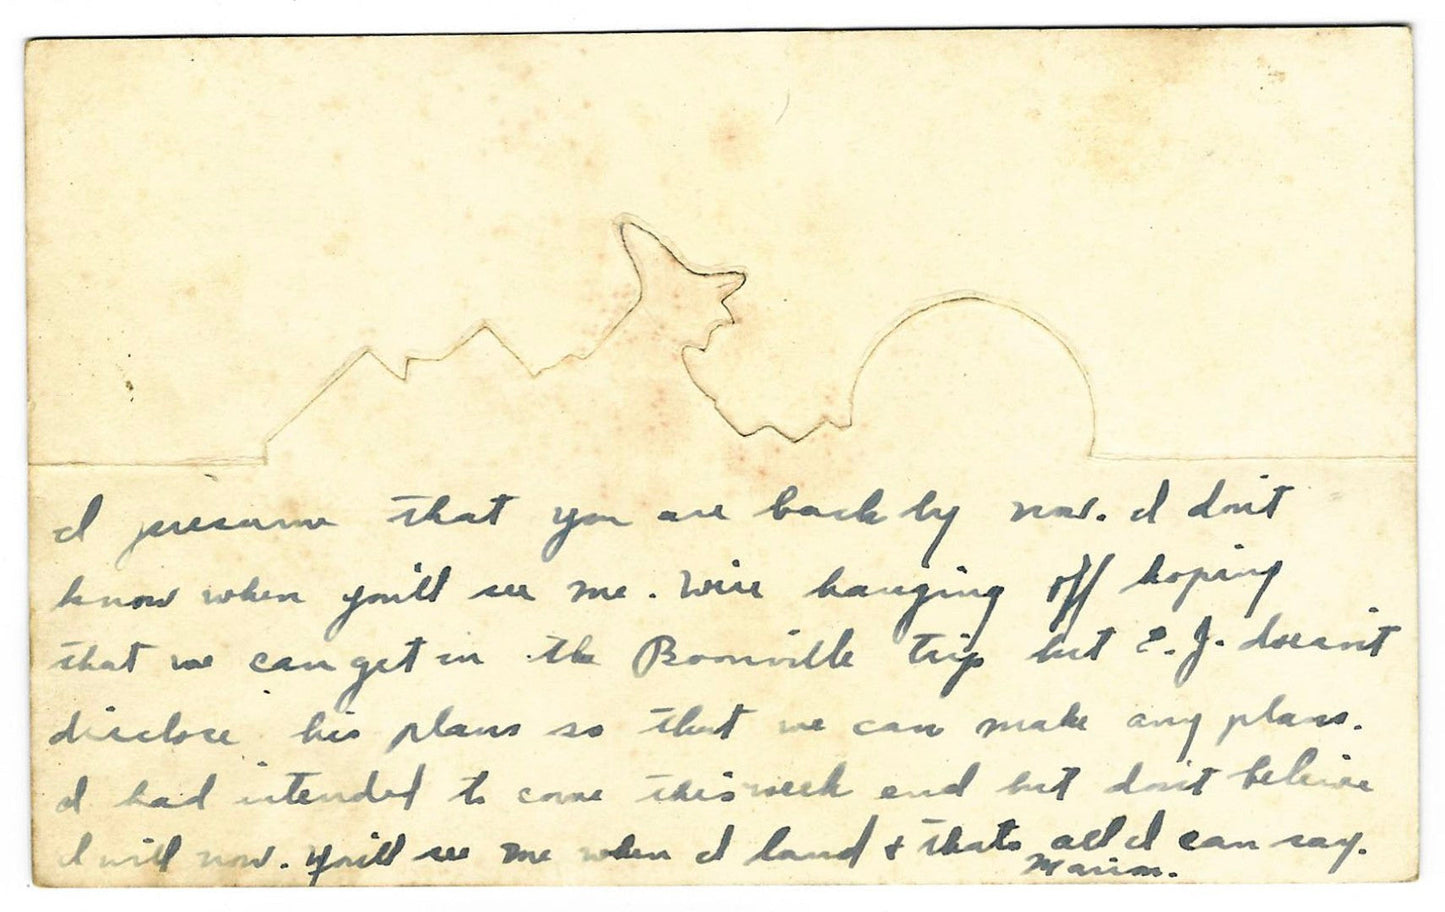 I presume that you are back by now. I don't
know when you'll see me. We're hanging off hoping
that we can get in the Boonville trip but E. J. doesn't
disclose his plans so that we can make any plans.
I had intended to come this week end but don't believe
I will now. You'll see me when I land & thats all I can say.
Marion.